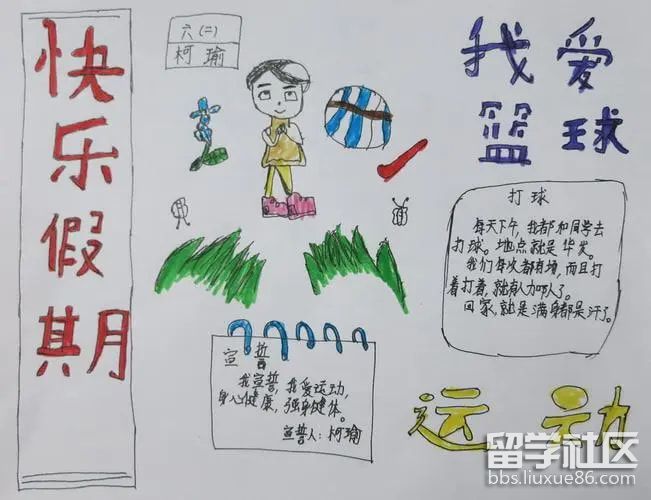 快乐假期
六(二)
柯瑜
我爱
篮球
打球
每天下午,我都和同学去
打球。地点就是华发。
我们每次都有场,而且打
着打着,就有人加入了。
回家,就是满身都是汗了。
宣誓
我宣誓,我爱运动,
身心健康,强身健体。
宣誓人:柯瑜
运动
留学社区
bbs.liuxue86.com